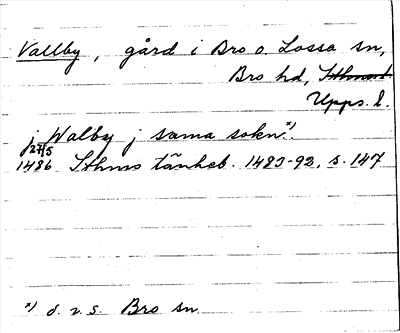 Vallby, gård i Bro o. Lossa sn,
Bro hd, Sthms l.
Upps. l.
j Walby j sama sokn x)
27/5
1486 Sthms tänkeb. 1483-92, s. 147
x) d. v. s. Bro sn.